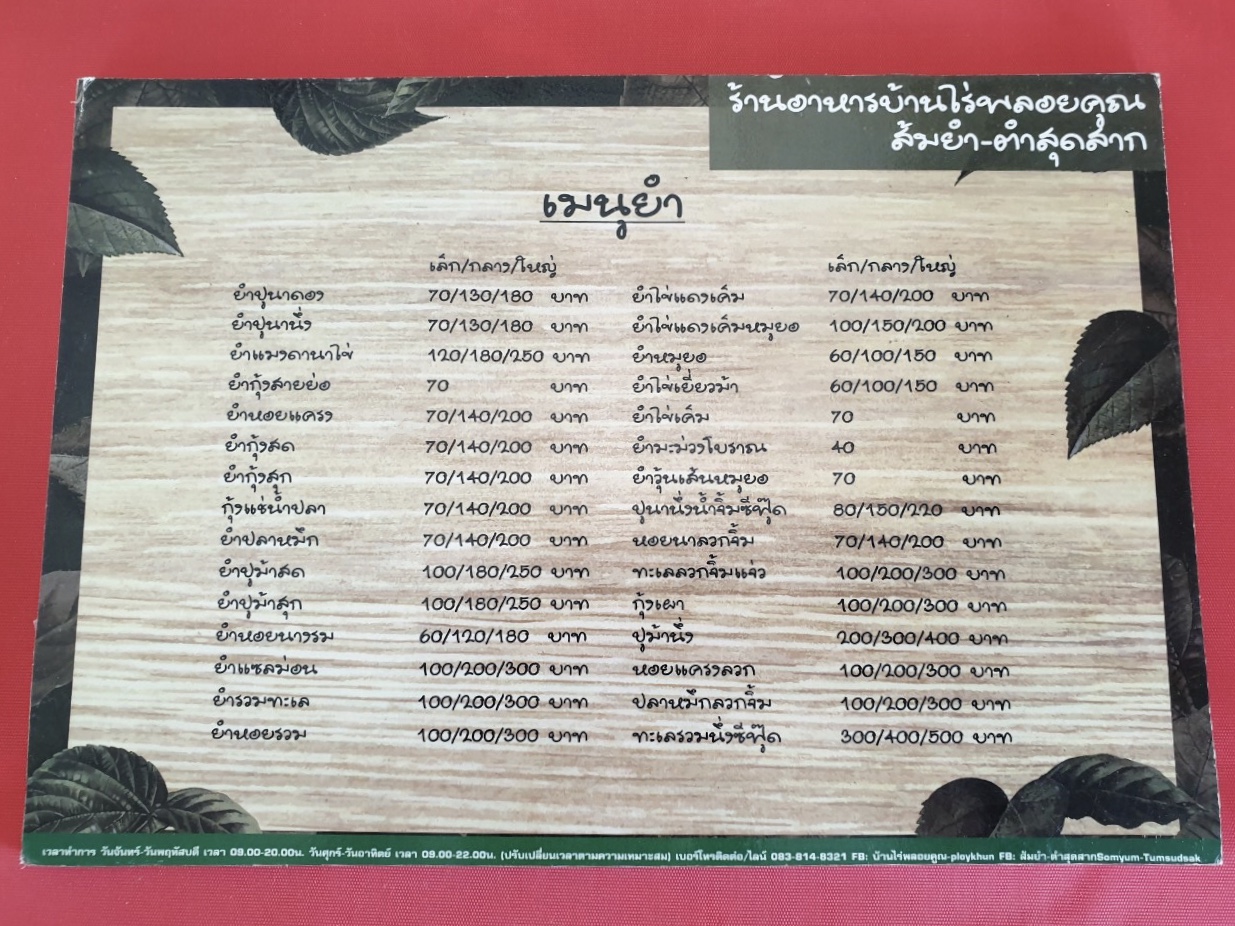 ร้านอาหารบ้านไร่พลอยคุณ
ส้มยำ-ตำสุดสาก
เมนูยำ
เล็ก/กลาง/ใหญ่
ยำปูนาดอง 70/130/180 บาท
ยำปูนานึ่ง 70/130/180 บาท
ยำแมงดานาไข่ 120/180/250 บาท
ยำกุ้งสายย่อ 70 บาท
ยำหอยแครง 70/140/200 บาท
ยำกุ้งสด 70/140/200 บาท
ยำกุ้งสุก 70/140/200 บาท
กุ้งแช่น้ำปลา 70/140/200 บาท
ยำปลาหมึก 70/140/200 บาท
ยำปูม้าสด 100/180/250 บาท
ยำปูม้าสุก 100/180/250 บาท
ยำหอยนางรม 60/120/180 บาท
ยำแซลม่อน 100/200/300 บาท
ยำรวมทะเล 100/200/300 บาท
ยำหอยรวม 100/200/300 บาท
เล็ก/กลาง/ใหญ่
ยำไข่แดงเค็ม 70/140/200 บาท
ยำไข่แดงเค็มหมูยอ 100/150/200 บาท
ยำหมูยอ 60/100/150 บาท
ยำไข่เยี่ยวม้า 60/100/150 บาท
ยำไข่เค็ม 70 บาท
ยำมะม่วงโบราณ 40 บาท
ยำวุ้นเส้นหมูยอ 70 บาท
ปูนานึ่งน้ำจิ้มซีฟู๊ด 80/150/220 บาท
หอยนาลวกจิ้ม 70/140/200 บาท
ทะเลลวกจิ้มแจ่ว 100/200/300 บาท
กุ้งเผา 100/200/300 บาท
ปูม้านึ่ง 200/300/400 บาท
หอยแครงลวก 100/200/300 บาท
ปลาหมึกลวกจิ้ม 100/200/300 บาท
ทะเลรวมนึ่งซีฟู๊ด 300/400/500 บาท
เวลาทำการ วันจันทร์-วันพฤหัสบดี เวลา 09.00-20.00น. วันศุกร์-วันอาทิตย์ เวลา 09.00-22.00น. (ปรับเปลี่ยนเวลาตามความเหมาะสม) เบอร์โทรติดต่อ/ไลน์ 083-814-8321 FB: บ้านไร่พลอยคูณ-ploykhun FB: ส้มยำ-ตำสุดสากSomyum-Tumsudsak